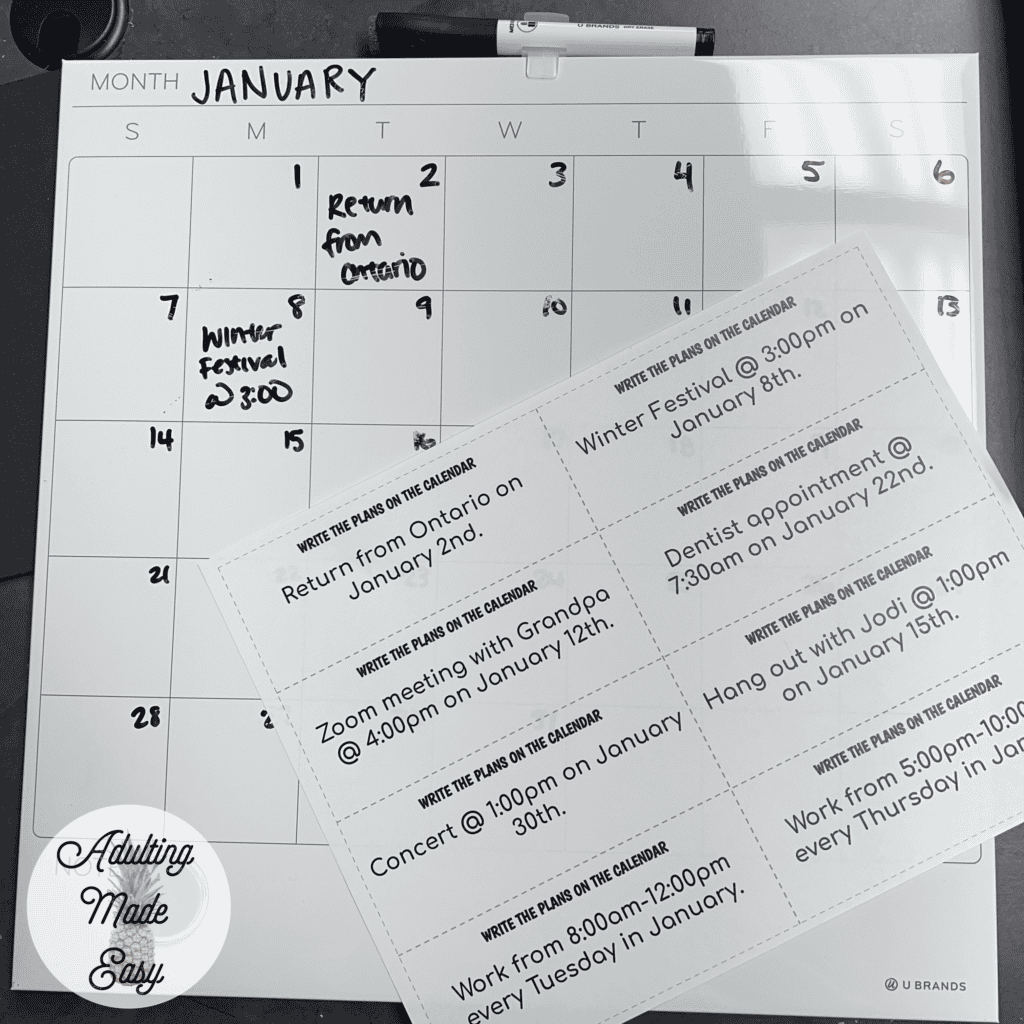 U BRANDS DRY ERASE
MONTH JANUARY
S M T W T F S
1 2 3 4 5 6
Return
from
Ontario
7 8 9 10 11 12 13
Winter
Festival
@ 3:00
14 15 16
21
28
WRITE THE PLANS ON THE CALENDAR
Winter Festival @ 3:00pm on
January 8th.
WRITE THE PLANS ON THE CALENDAR
Return from Ontario on
January 2nd.
WRITE THE PLANS ON THE CALENDAR
Dentist appointment @
7:30am on January 22nd.
WRITE THE PLANS ON THE CALENDAR
Zoom meeting with Grandpa
@ 4:00pm on January 12th.
WRITE THE PLANS ON THE CALENDAR
Hang out with Jodi @ 1:00pm
on January 15th.
WRITE THE PLANS ON THE CALENDAR
Concert @ 1:00pm on January
30th.
WRITE THE PLANS ON THE CALENDAR
Work from 5:00pm-10:00
every Thursday in Jan
WRITE THE PLANS ON THE CALENDAR
Work from 8:00am-12:00pm
every Tuesday in January.
Adulting
Made
Easy
U BRANDS